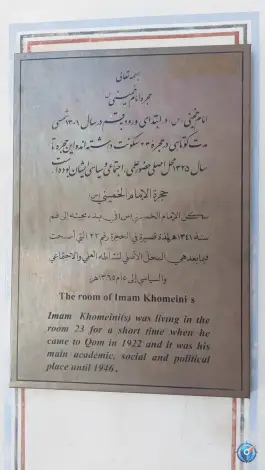 بسمه تعالی
حجره امام خمینی (س)
امام خمینی (س) در ابتدای ورود به قم در سال ۱۳۰۱ شمسی
مدت کوتاهی در حجره ۲۳ سکونت داشته اند و این حجره تا
سال ۱۳۲۵ محل اصلی حضور علمی، اجتماعی و سیاسی ایشان بوده است.
حجرة الإمام الخميني (س)
سكن الإمام الخميني (س) في بدء مجيئه إلى قم
سنة ١٣٤١ هـ لمدة قصيرة في الحجرة رقم ٢٣ التي أصبحت
فيما بعد هي المحل الأصلي لنشاطه العلمي والاجتماعي
والسياسي إلى عام ١٣٦٥ هـ
The room of Imam Khomeini s
Imam Khomeini(s) was living in the
room 23 for a short time when he
came to Qom in 1922 and it was his
main academic, social and political
place until 1946 .